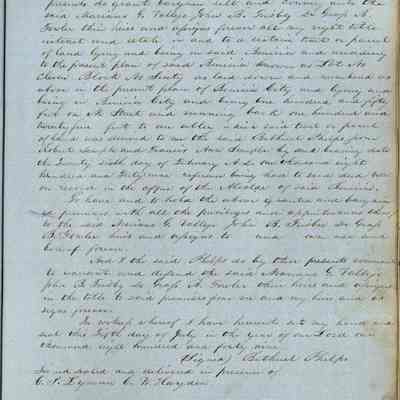 presents do grant bargain sell and convey unto the
said Mariano G. Vallejo John B. Frisby De Graf A.
Fowler their heirs and assigns forever all my right title
interest and estate in and to a certain tract or parcel
of land lying and being in said Benicia and according
to the present plan of said Benicia known as Lot No
Block No Sixty as laid down and numbered as
above in the present plan of Benicia City and lying and
being in Benicia City and being one hundred and fifty
feet on Street and running back one hundred and
twenty five feet to an alley and is said tract or parcel
of land was deeded to me the said Bethuel Phelps from
Robert Semple and Francis Ann Semple by and bearing date
the Twenty sixth day of February A.D. one thousand eight
hundred and forty nine reference being had to said deed now
on record in the office of the Alcalde of said Benicia.
To have and to hold the above granted and bargain
ed premises with all the privileges and appurtenances thereof
to the said Mariano G. Vallejo John B. Frisby De Graf
A. Fowler heirs and assigns to and own use and
behoof forever.
And I the said Phelps do by these presents covenant
to warrant and defend the said Mariano G. Vallejo
John B. Frisby De Graf A. Fowler their heirs and assigns
in the title to said premises from me and my heirs and as
signs forever.
In witness whereof I have hereunto set my hand and
seal this Fifth day of July in the year of our Lord one
thousand eight hundred and forty nine
(Signed) Bethuel Phelps
Sealed and delivered in presence of
C. P. Lyman C. W. Hayden